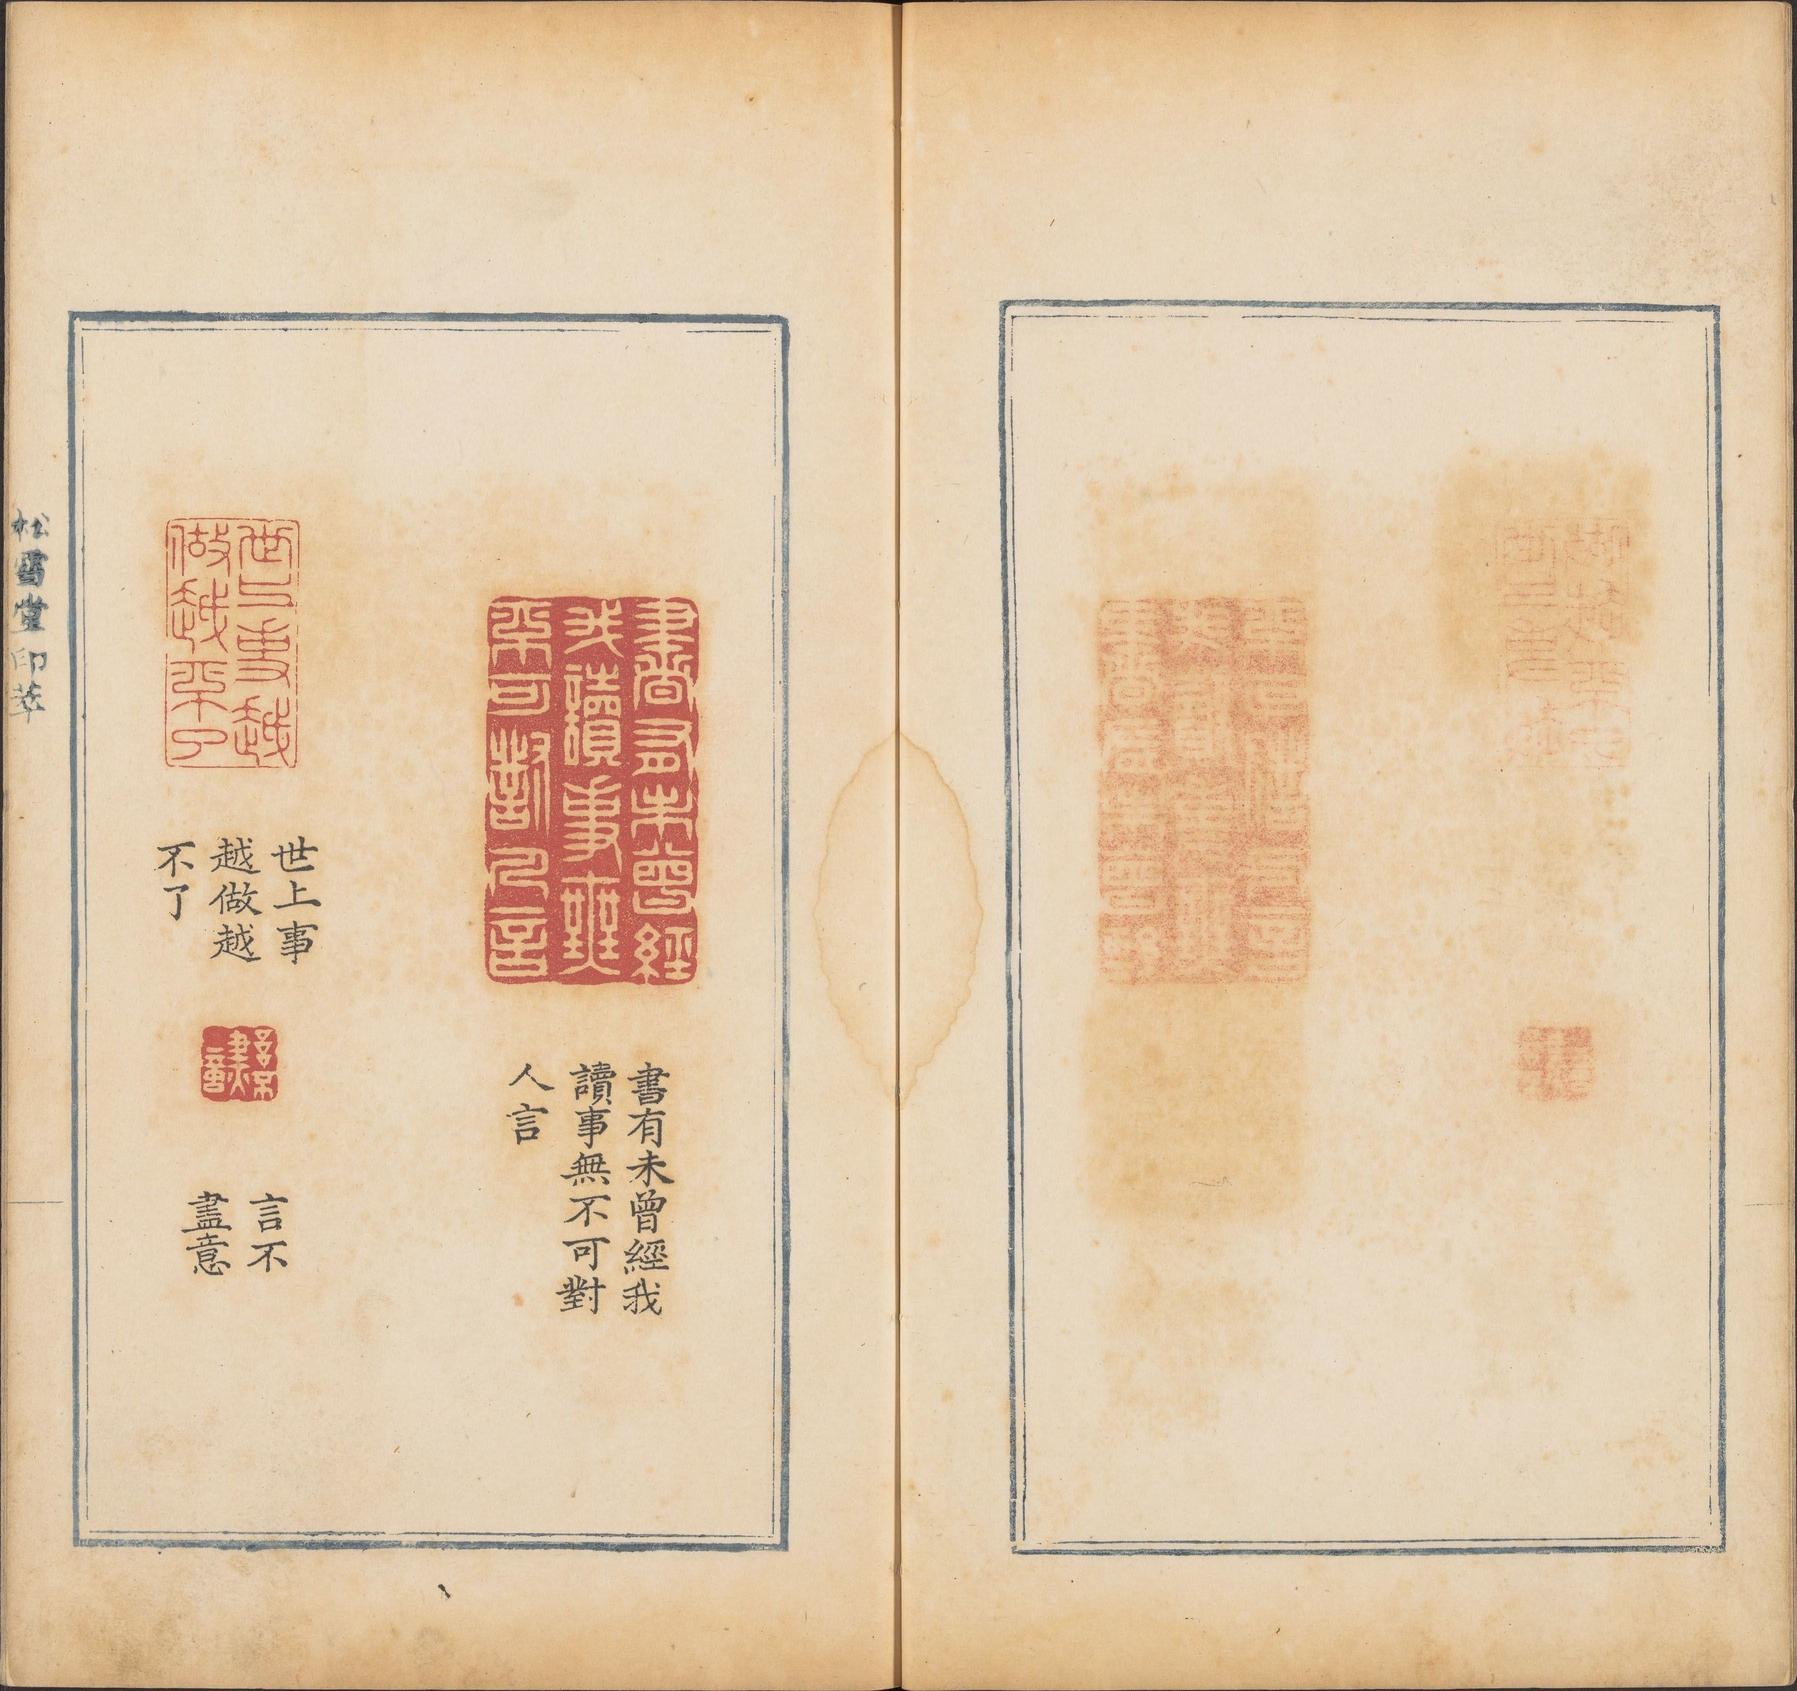 書有未曾經
我讀事無
不可對人言
書有未曾經我
讀事無不可對
人言
世上事越
做越不了
世上事
越做越
不了
言不
盡意
言不
盡意
松雪堂印萃